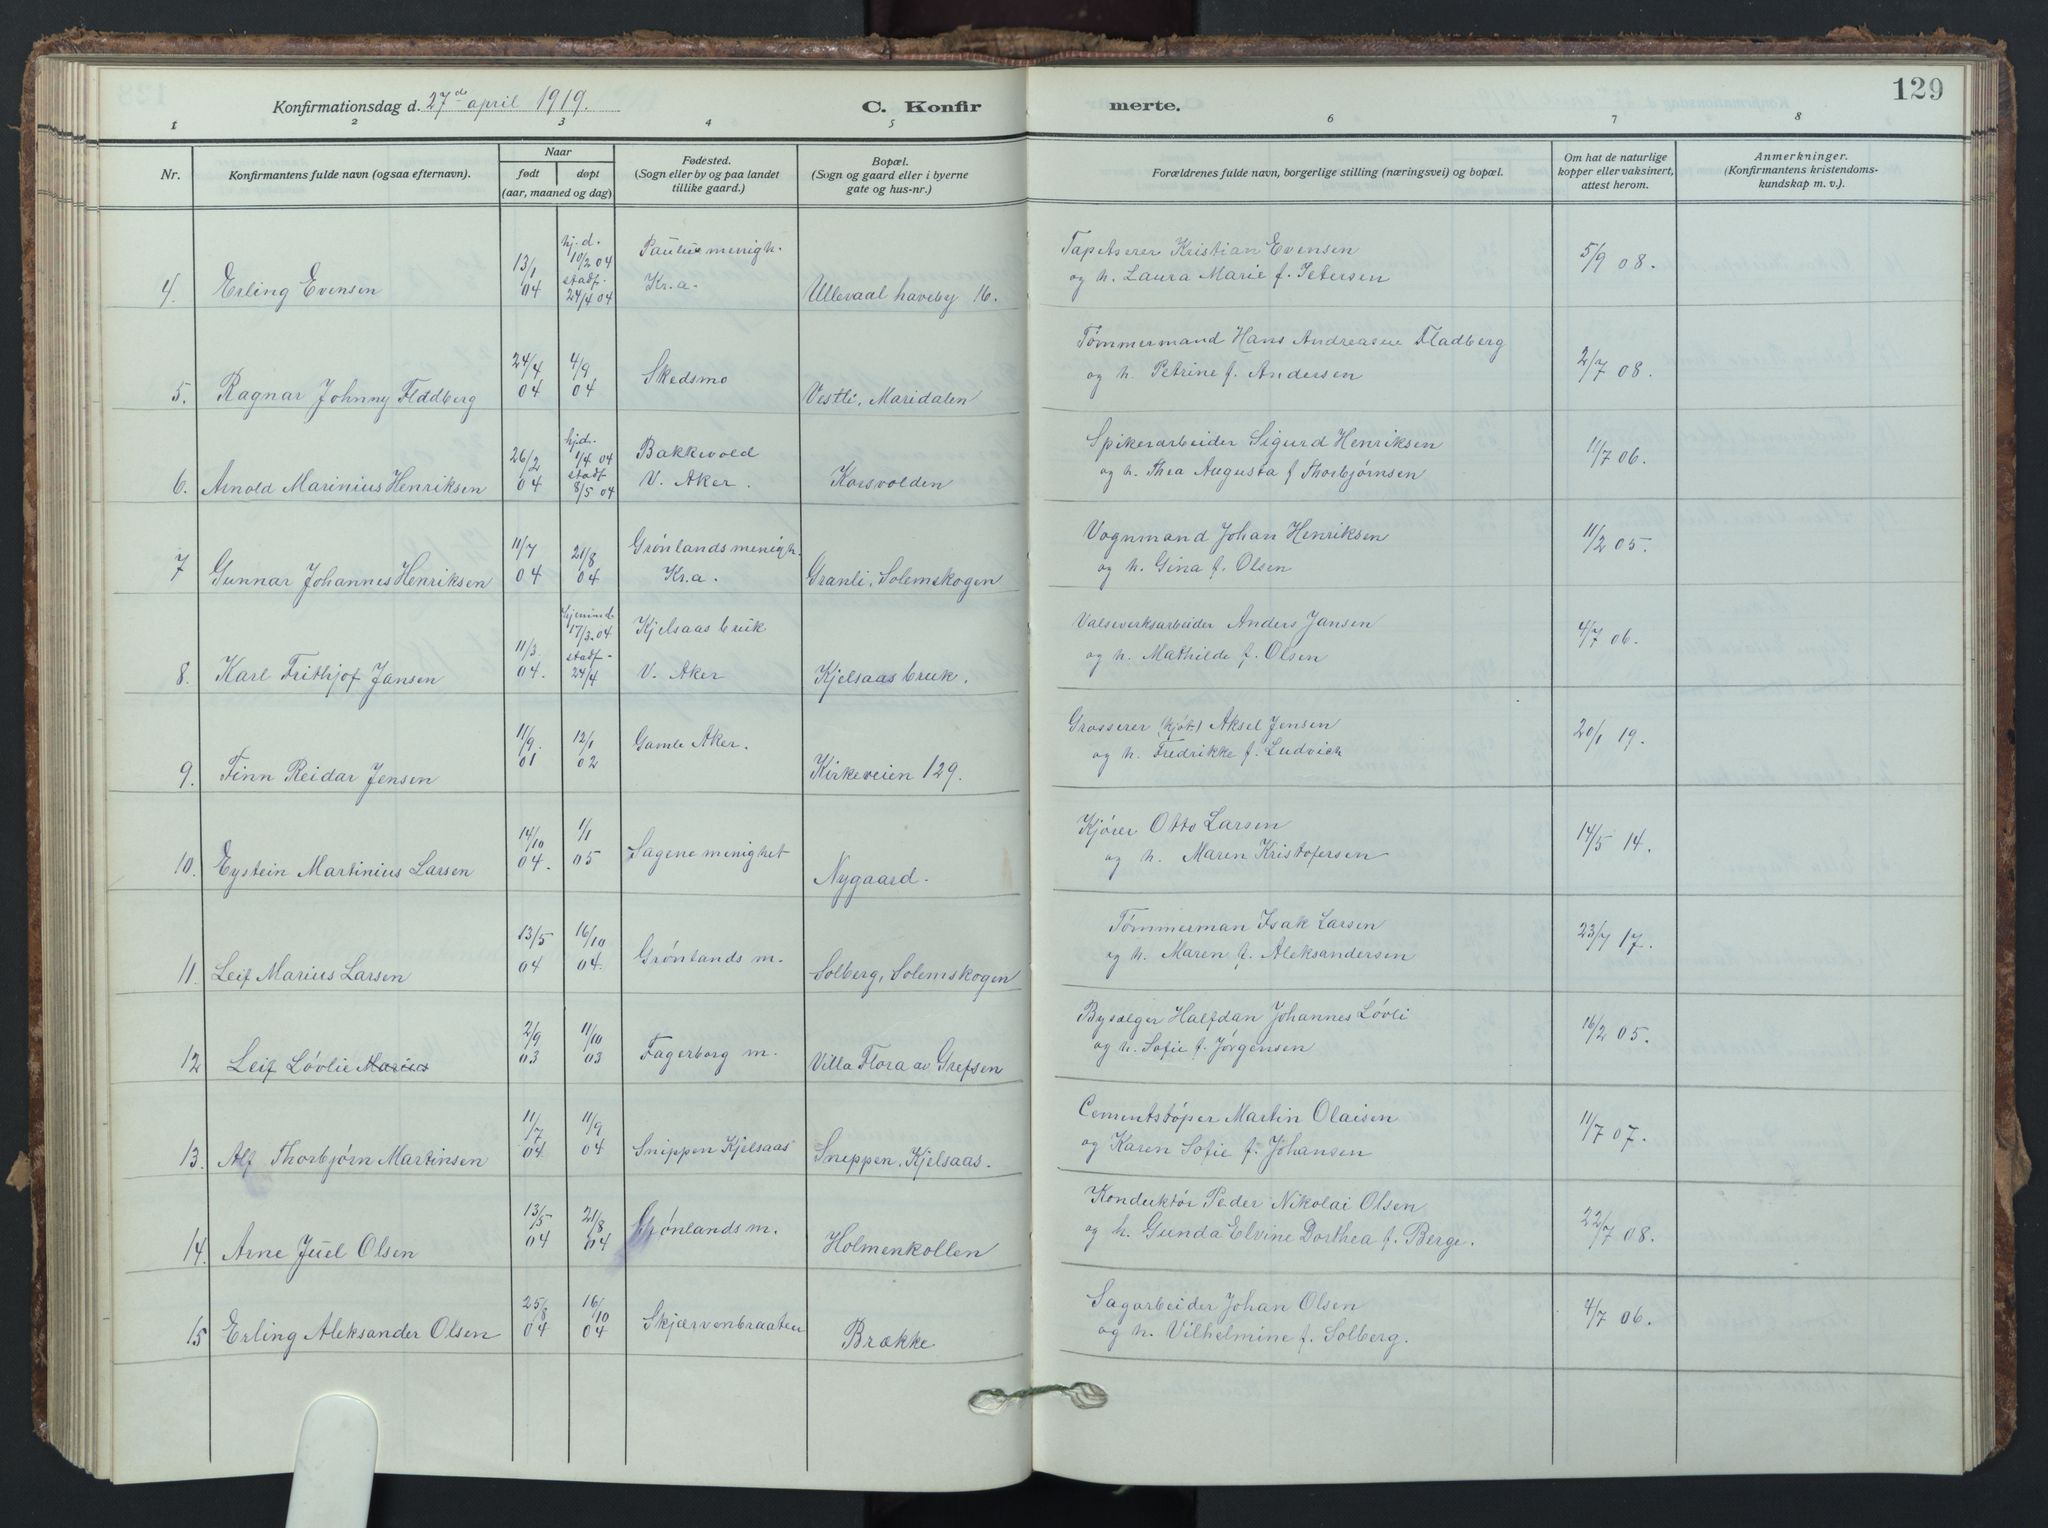 Konfirmationsdag d. 27de april 1919.
C. Konfir
merte.
129
1 2 3 4 5 6 7 8
Nr.
Konfirmantens fulde navn (ogsaa efternavn).
Naar
født døpt
(aar, maaned og dag)
Fødested.
(Sogn eller by og paa landet
tillike gaard.)
Bopæl.
(Sogn og gaard eller i byerne
gate og hus-nr.)
Forældrenes fulde navn, borgerlige stilling (næringsvei) og bopæl.
Om hat de naturlige
kopper eller vaksinert,
attest herom.
Anmerkninger.
(Konfirmantens kristendoms-
kundskap m. v.).
4. Erling Evensen
13/1 04
hj.d. 10/2 04 stadf. 24/4 04
Paulus menigh. Kr.a.
Ullevaal haveby 16.
Tapetserer Kristian Evensen
og h. Laura Marie f. Petersen
5/9 08.
5. Ragnar Johnny Fladberg
24/4 04
4/9 04
Skedsmo
Vestli, Maridalen
Tømmermand Hans Andreasen Fladberg
og h. Petrine f. Andersen
2/7 08.
6. Arnold Marinius Henriksen
26/2 04
hj.d. 1/4 04 stadf 8/5 04
Bakkevold
V. Aker.
Korsvolden
Spikerarbeider Sigurd Henriksen
og h. Thea Augusta f Thorbjørnsen
11/7 06.
7 Gunnar Johannes Henriksen
11/7 04
21/8 04
Grønlands menigh.
Kr.a.
Granli, Solemskogen
Vognmand Johan Henriksen
og h. Gina f. Olsen
11/2 05.
8. Karl Frithjof Jansen
11/3. 04.
hjemmed. 17/3-04 stadf- 24/4
Kjelsaas bruk
V. Aker
Kjelsaas bruk.
Valseverksarbeider Anders Jansen
og h. Mathilde f. Olsen
4/7 06.
9. Finn Reidar Jensen
11/9. 01
12/1 02
Gamle Aker.
Kirkeveien 129.
Grosserer (kjøt) Aksel Jensen
og h. Fredrikke f. Ludvich
20/1 19.
10. Eystein Martinius Larsen
14/10 04.
1/1 05
Sagene menighet
Nygaard.
Kjører Otto Larsen
og h. Maren Kristofersen
14/5 14.
11. Leif Marius Larsen
13/5 04
16/10 04.
Grønlands m.
Solberg, Solemskogen
Tømmerman Isak Larsen
og h. Maren f. Aleksandersen
23/7 17.
12 Leif Løvlie Marius
2/9 03
11/10 03
Fagerborg m.
Villa Flora av Grefsen
Bysælger Halfdan Johannes Løvli
og h. Sofie f. Jørgensen
16/2 05.
13. Alf Thorbjørn Martinsen
11/7 04
11/9 04
Snippen Kjelsaas
Snippen, Kjelsaas.
Cementstøper Martin Olaisen
og Karen Sofie f. Johansen
11/7 07.
14. Arne Juel Olsen
13/5 04
21/8 04
Grønlands m.
Holmenkollen
Konduktør Peder Nikolai Olsen
og h. Gunda Elvine Dorthea f. Berge.
22/7 08.
15 Erling Aleksander Olsen
25/8 04
16/10 04
Skjærvenbraaten
Brække
Sagarbeider Johan Olsen
og h. Vilhelmine f. Solberg.
4/7 06.